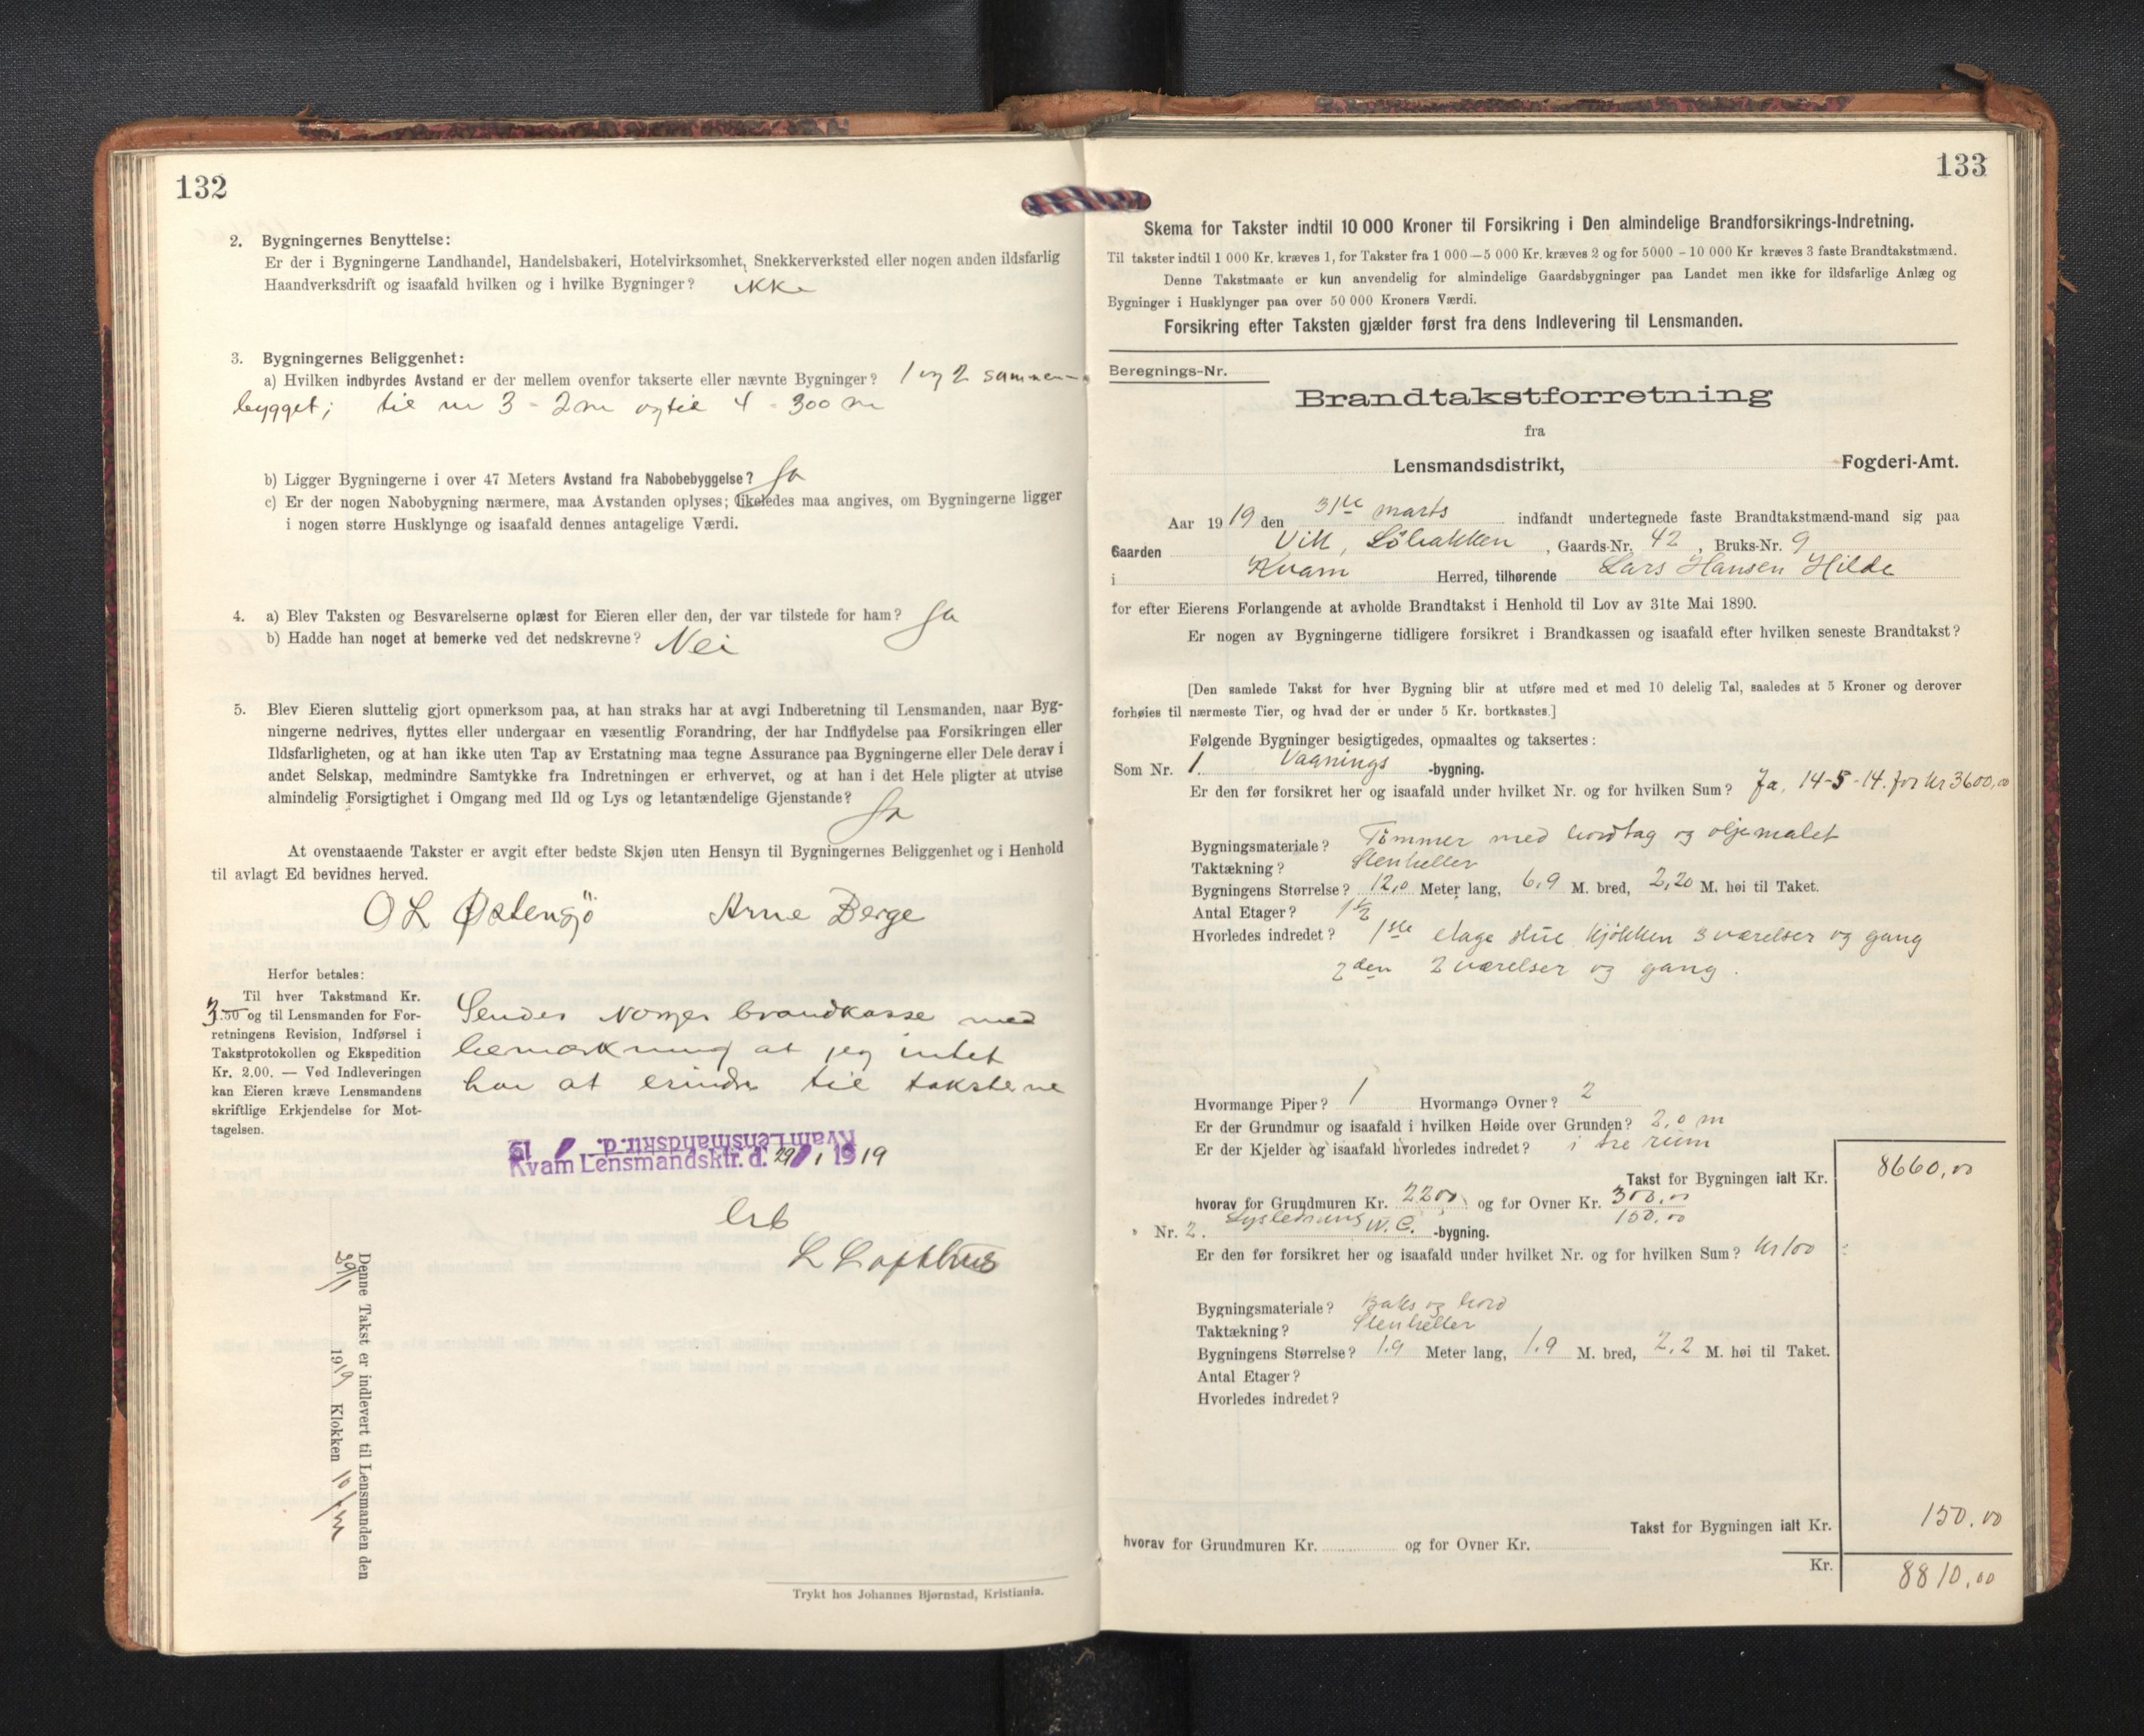 132
2. Bygningernes Benyttelse:
Er der i Bygningerne Landhandel, Handelsbakeri, Hotelvirksomhet, Snekkerverksted eller nogen anden ildsfarlig
Haandverksdrift og isaafald hvilken og i hvilke Bygninger? ikke
3. Bygningernes Beliggenhet:
a) Hvilken indbyrdes Avstand er der mellem ovenfor takserte eller nævnte Bygninger? 1 og 2 sammen-
bygget; til nr 3 - 2 m og til 4 - 300 m
b) Ligger Bygningerne i over 47 Meters Avstand fra Nabobebyggelse? Ja
c) Er der nogen Nabobygning nærmere, maa Avstanden oplyses; likeledes maa angives, om Bygningerne ligger
i nogen større Husklynge og isaafald dennes antagelige Værdi.
4. a) Blev Taksten og Besvarelserne oplæst for Eieren eller den, der var tilstede for ham? Ja
b) Hadde han noget at bemerke ved det nedskrevne? Nei
5. Blev Eieren sluttelig gjort opmerksom paa, at han straks har at avgi Indberetning til Lensmanden, naar Byg-
ningerne nedrives, flyttes eller undergaar en væsentlig Forandring, der har Indflydelse paa Forsikringen eller
Ildsfarligheten, og at han ikke uten Tap av Erstatning maa tegne Assurance paa Bygningerne eller Dele derav i
andet Selskap, medmindre Samtykke fra Indretningen er erhvervet, og at han i det Hele pligter at utvise
almindelig Forsigtighet i Omgang med Ild og Lys og letantændelige Gjenstande?
Ja
At ovenstaaende Takster er avgit efter bedste Skjøn uten Hensyn til Bygningernes Beliggenhet og i Henhold
til avlagt Ed bevidnes herved.
O L Østensjö Arne Berge
Herfor betales:
Til hver Takstmand Kr.
3.50 og til Lensmanden for For-
retningens Revision, Indførsel i
Takstprotokollen og Ekspedition
Kr. 2.00. — Ved Indleveringen
kan Eieren kræve Lensmandens
skriftlige Erkjendelse for Mot-
tagelsen.
Sendes Norges brandkasse med
bemærkning at jeg intet
har at erindre til taksterne
Kvam Lensmandsktr. d. 19
Kvam Lensmandsktr. d. 29/1 1919
Erb
L Lofthus
Denne Takst er indlevert til Lensmanden den
29/1 1919 Klokken 10
Trykt hos Johannes Bjørnstad, Kristiania.
133
Skema for Takster indtil 10 000 Kroner til Forsikring i Den almindelige Brandforsikrings-Indretning.
Til takster indtil 1 000 Kr. kræves 1, for Takster fra 1 000 — 5 000 Kr. kræves 2 og for 5000 - 10 000 Kr kræves 3 faste Brandtakstmænd.
Denne Takstmaate er kun anvendelig for almindelige Gaardsbygninger paa Landet men ikke for ildsfarlige Anlæg og
Bygninger i Husklynger paa over 50 000 Kroners Værdi.
Forsikring efter Taksten gjælder først fra dens Indlevering til Lensmanden.
Beregnings-Nr.
Brandtakstforretning
fra
Lensmandsdistrikt, Fogderi-Amt.
Aar 1919 den 31te marts indfandt undertegnede faste Brandtakstmænd-mand sig paa
Gaarden Vik, Löbakken, Gaards-Nr. 42, Bruks-Nr. 9
i Kvam Herred, tilhørende Lars Hansen Hilde
for efter Eierens Forlangende at avholde Brandtakst i Henhold til Lov av 31te Mai 1890.
Er nogen av Bygningerne tidligere forsikret i Brandkassen og isaafald efter hvilken seneste Brandtakst?
[Den samlede Takst for hver Bygning blir at utføre med et med 10 delelig Tal, saaledes at 5 Kroner og derover
forhøies til nærmeste Tier, og hvad der er under 5 Kr. bortkastes.]
Følgende Bygninger besigtigedes, opmaaltes og taksertes:
Som Nr. 1. Vaanings -bygning.
Er den før forsikret her og isaafald under hvilket Nr. og for hvilken Sum? Ja, 14-5-14. for kr 3600,00
Bygningsmateriale? Tömmer med bordtag og oljemalet
Taktækning? Stenheller
Bygningens Størrelse? 12,0 Meter lang, 6,9 M. bred, 2,20 M. høi til Taket.
Antal Etager? 1 1/2
Hvorledes indredet? 1ste etage stue, kjökken 3 værelser og gang
2den 2 værelser og gang.
Hvormange Piper? 1 Hvormange Ovner? 2
Er der Grundmur og isaafald i hvilken Høide over Grunden? 2,0 m
Er der Kjelder og isaafald hvorledes indredet? i tre rum
Takst for Bygningen ialt Kr. 8660,00
hvorav for Grundmuren Kr. 2200, og for Ovner Kr. 300,00
150,00
Nr. 2. W.C. -bygning.
Er den før forsikret her og isaafald under hvilket Nr. og for hvilken Sum? kr 100
Bygningsmateriale? Baks og bord
Taktækning? Stenheller
Bygningens Størrelse? 1.9 Meter lang, 1.9 M. bred, 2,2 M. høi til Taket.
Antal Etager?
Hvorledes indredet?
Takst for Bygningen ialt Kr. 150.00
hvorav for Grundmuren Kr. og for Ovner Kr.
Kr. 8810,00